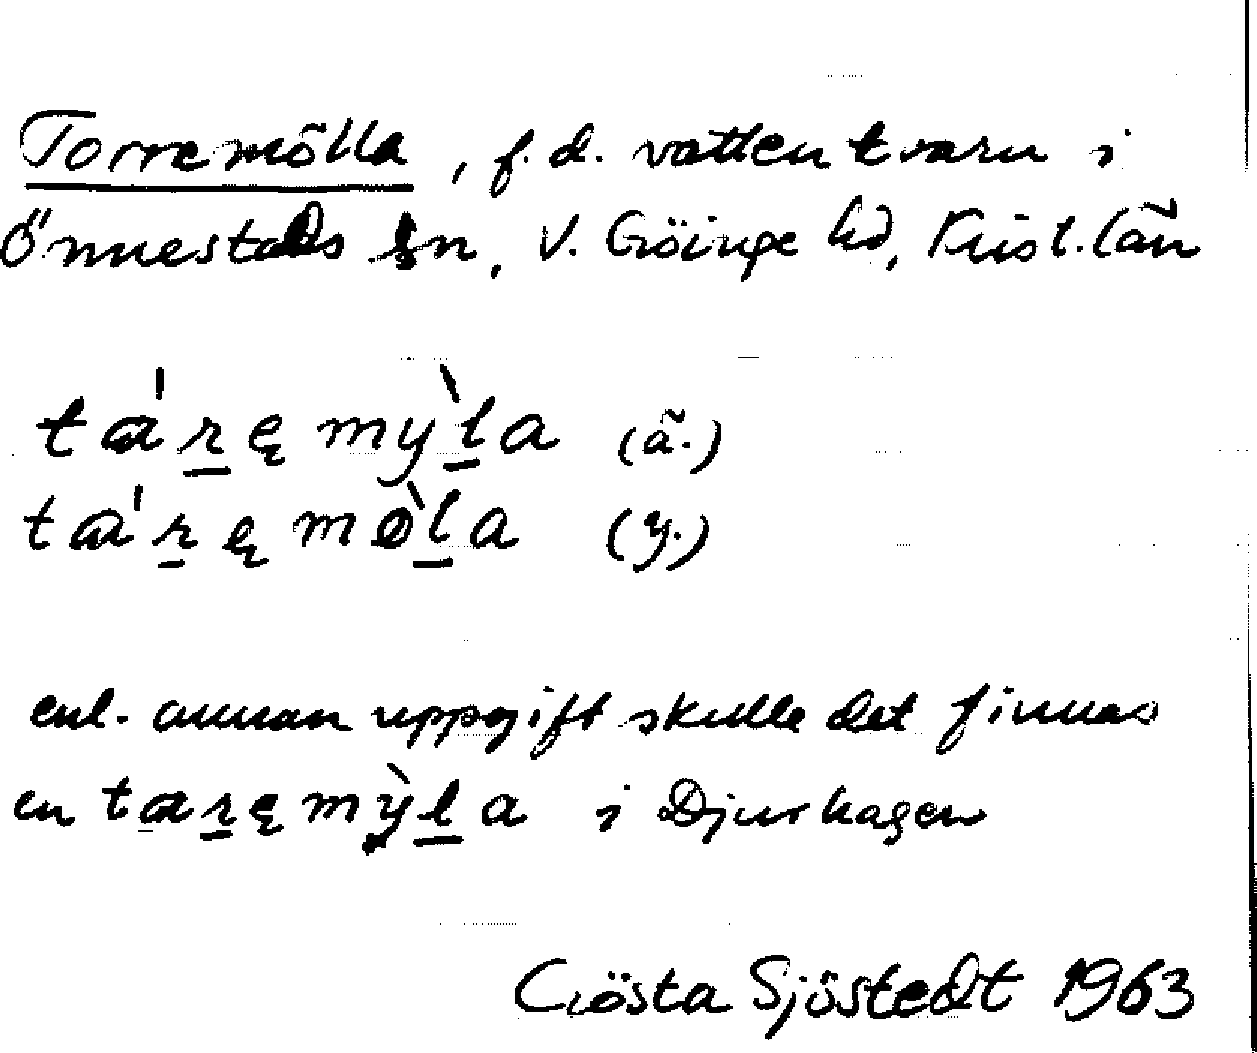 Torremölla, f.d. vattenkvarn i
Önnestads sn, V. Göinge hd, Krist. län
tá'r̲ęmỳl̲a (ä.)
tá'r̲ęmøl̲̀a (y.)
enl. annan uppgift skulle det finnas
en tar̲ęmỳl̲a i Djurhagen
Gösta Sjöstedt 1963